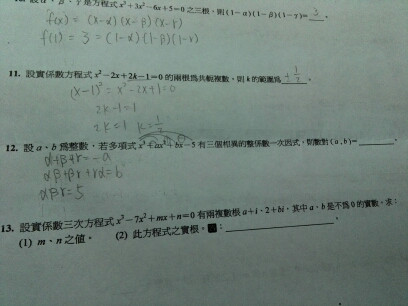 β、γ是方程式x³+3x²-6x+5=0 之三根，則(1-α)(1-β)(1-γ)= 3 。
f(x) = (x-α)(x-β)(x-γ)
f(1) = 3 = (1-α)(1-β)(1-γ)
11. 設實係數方程式 x²-2x+2k-1=0 的兩根爲共軛複數，則 k 的範圍爲
(x-1)² = x²-2x+1=0
2k-1=1
2k=1 k=½
12. 設 a、b 爲整數，若多項式 x³+ax²+bx-5 有三個相異的整係數一次因式，則數對(a,b)=
α+β+γ=-a
αβ+βγ+γα=b
αβγ=5
13. 設實係數三次方程式 x³-7x²+mx+n=0 有兩複數根 a+i、2+bi，其中 a、b 是不爲0的實數，求：
(1) m、n 之值。 (2) 此方程式之實根。■：